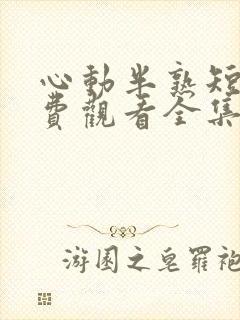 心動半熟短
費觀看全集
游園之皂羅袍